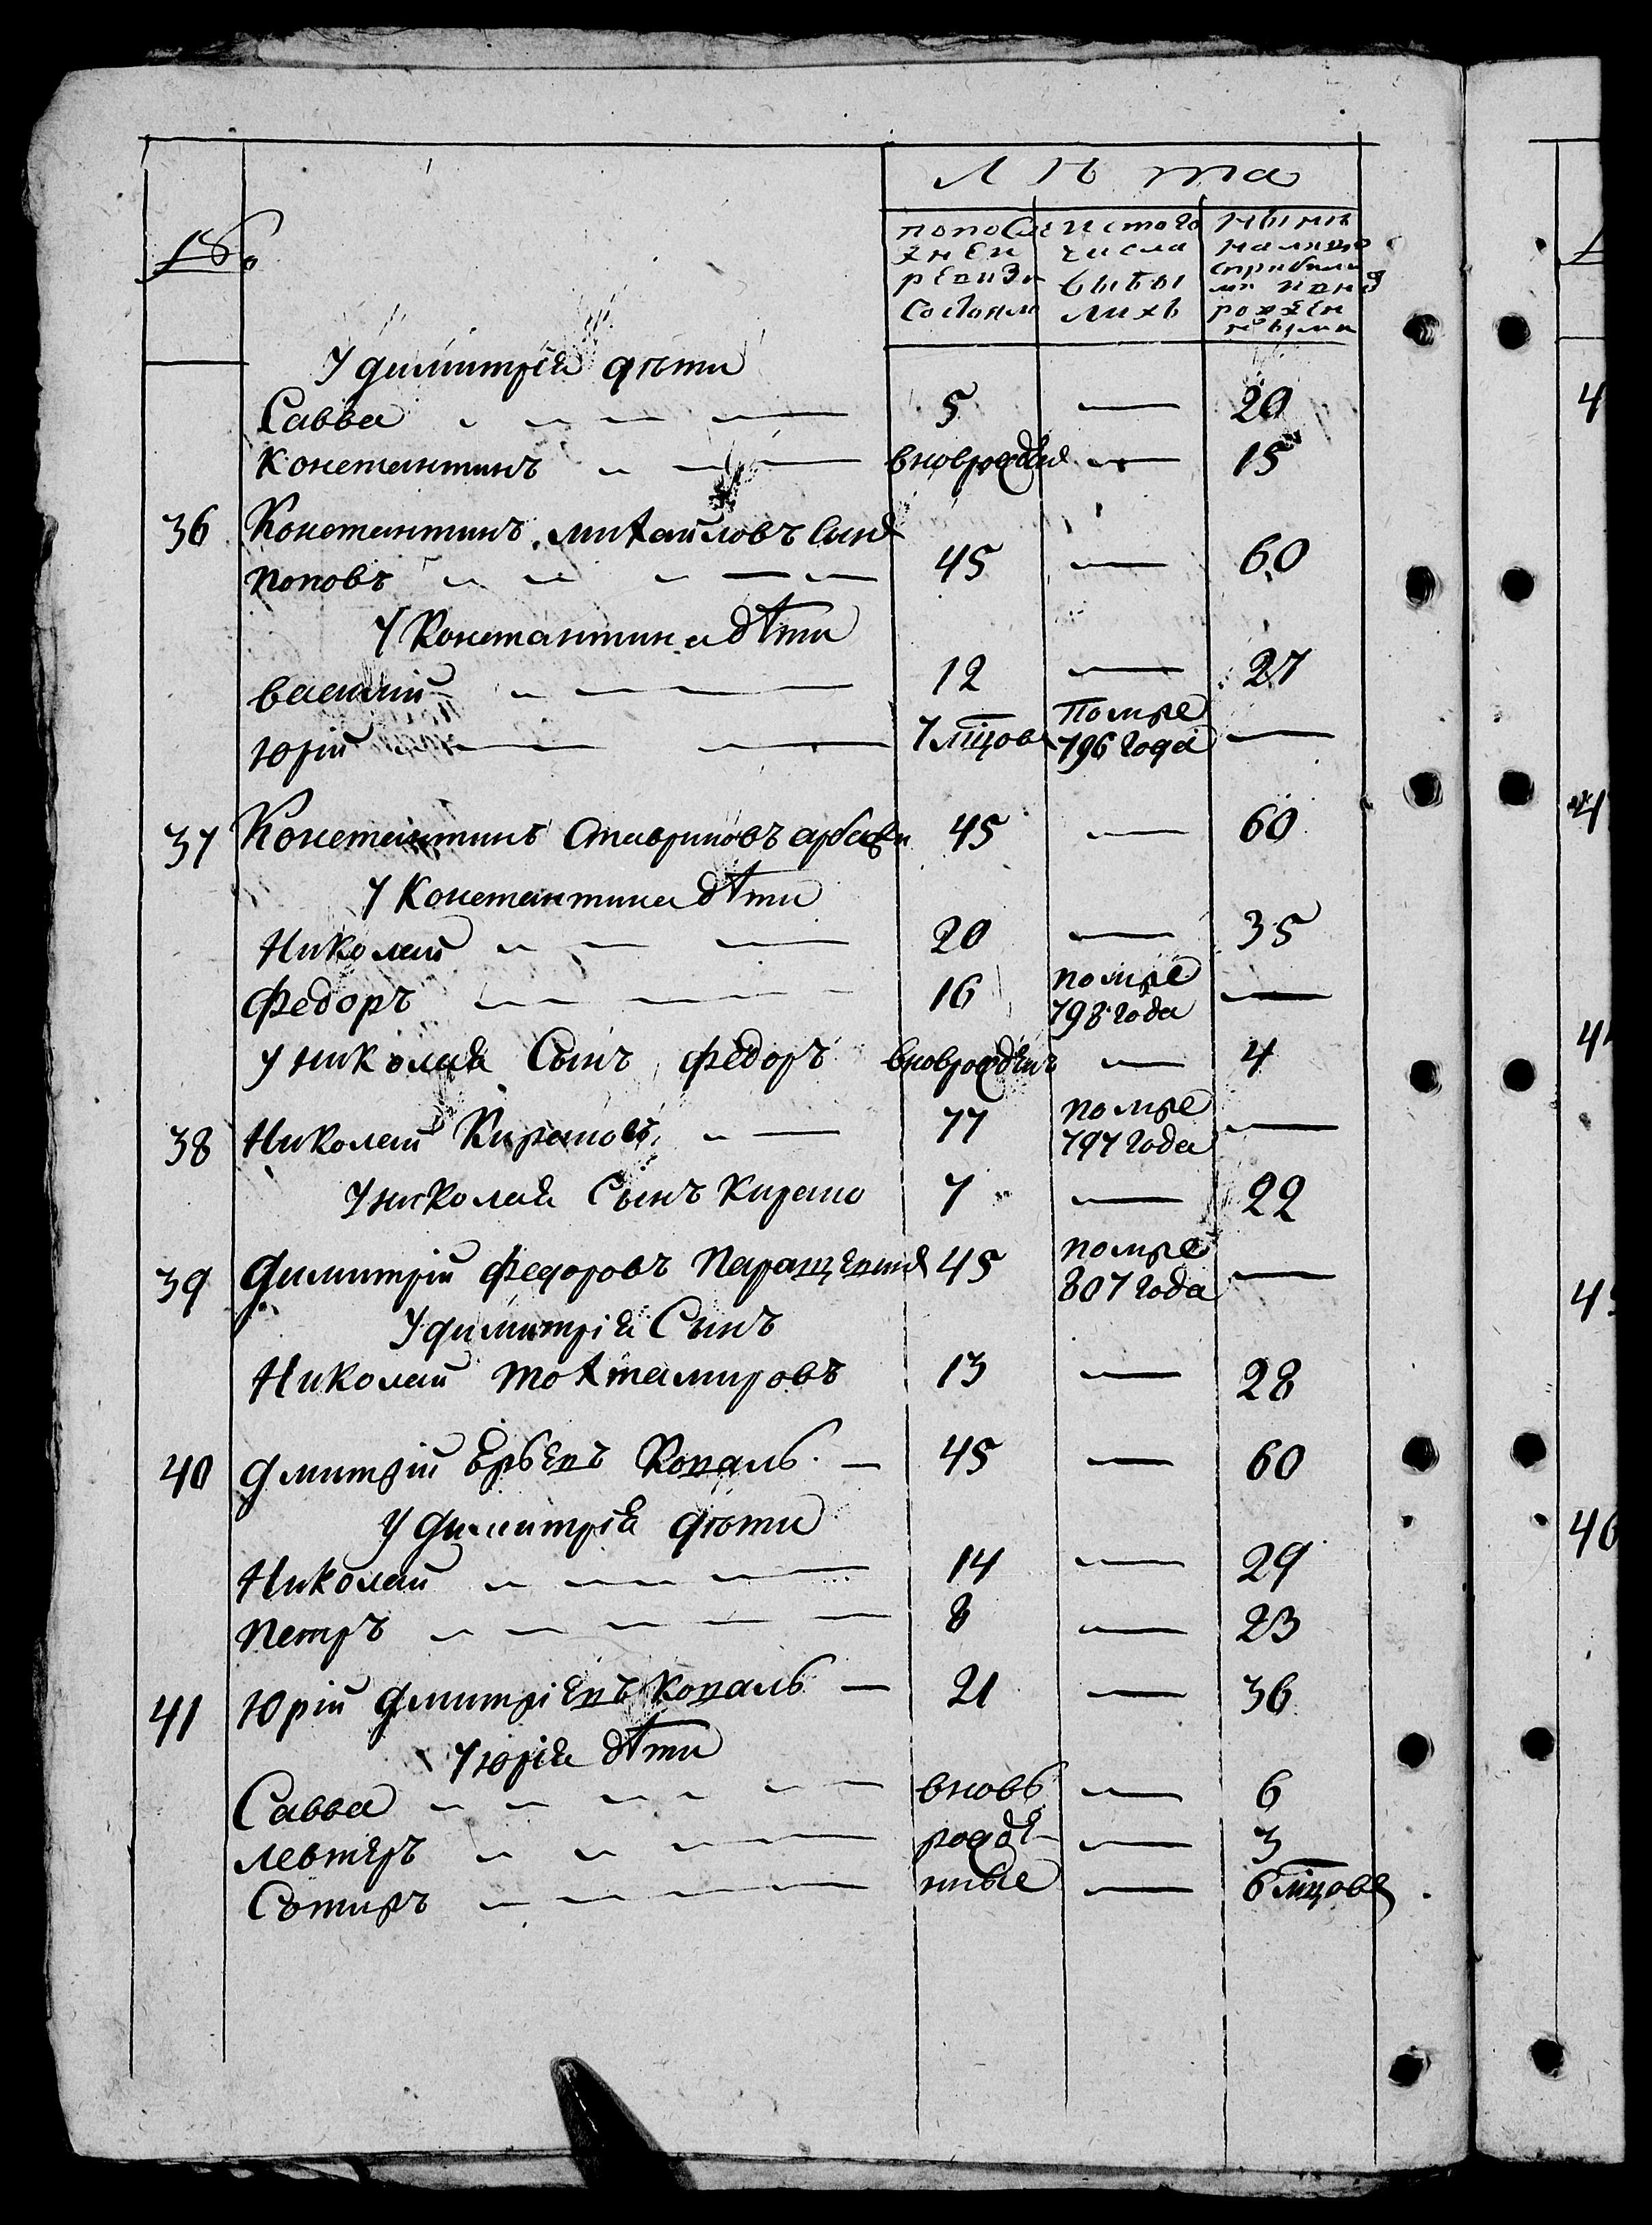 Лѣта
№
попослѣдней ревизи состояло
изтого числа выбылихъ
нынѣ налицо сприбылыми ивновь рожденными
У димитрія дѣти
Савва 5 — 20
Константинъ вновьрожден — 15
36 Константинъ михайловъ сынъ
Поповъ 45 — 60
У Константина дѣти
василий 12 — 27
Юрій 7 мцовъ помре 796 года —
37 Константинъ Ставриновъ 45 — 60
У Константина дѣти
Николай 20 — 35
Федоръ 16 помре 798 года —
У николая Сынъ федоръ вновьрожденъ — 4
38 Николай Кирановъ 77 помре 797 года —
У николая Сынъ Кирано 7 — 22
39 Димитрій Федоровъ 45 помре 807 года —
У димитрія Сынъ
Николай Тохтамировъ 13 — 28
40 Дмитрій Коваль 45 — 60
У Димитрія дѣти
Николай 14 — 29
Петръ 8 — 23
41 Юрій Дмитріевъ Коваль — 21 — 36
У юрія дѣти
Савва вновь — 6
левтеръ рожде — 3
Сотиръ нные — 6 мцовъ
4
4
4
4
46